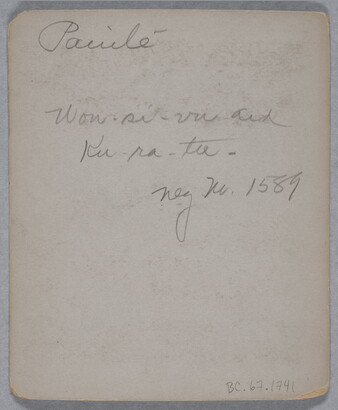 Paiuté
Won-si-vu and
Ku-ra-tu-
neg No. 1589
BC.67.1741